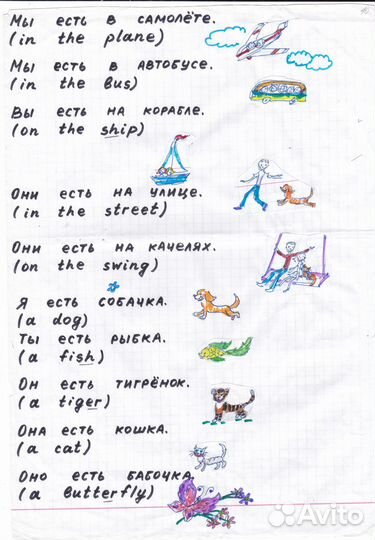 Мы есть в самолёте.
(in the plane)
Мы есть в автобусе.
(in the bus)
Вы есть на корабле.
(on the ship)
Они есть на улице.
(in the street)
Они есть на качелях.
(on the swing)
Я есть собачка.
(a dog)
Ты есть рыбка.
(a fish)
Он есть тигрёнок.
(a tiger)
Она есть кошка.
(a cat)
Оно есть бабочка.
(a butterfly)
Avito